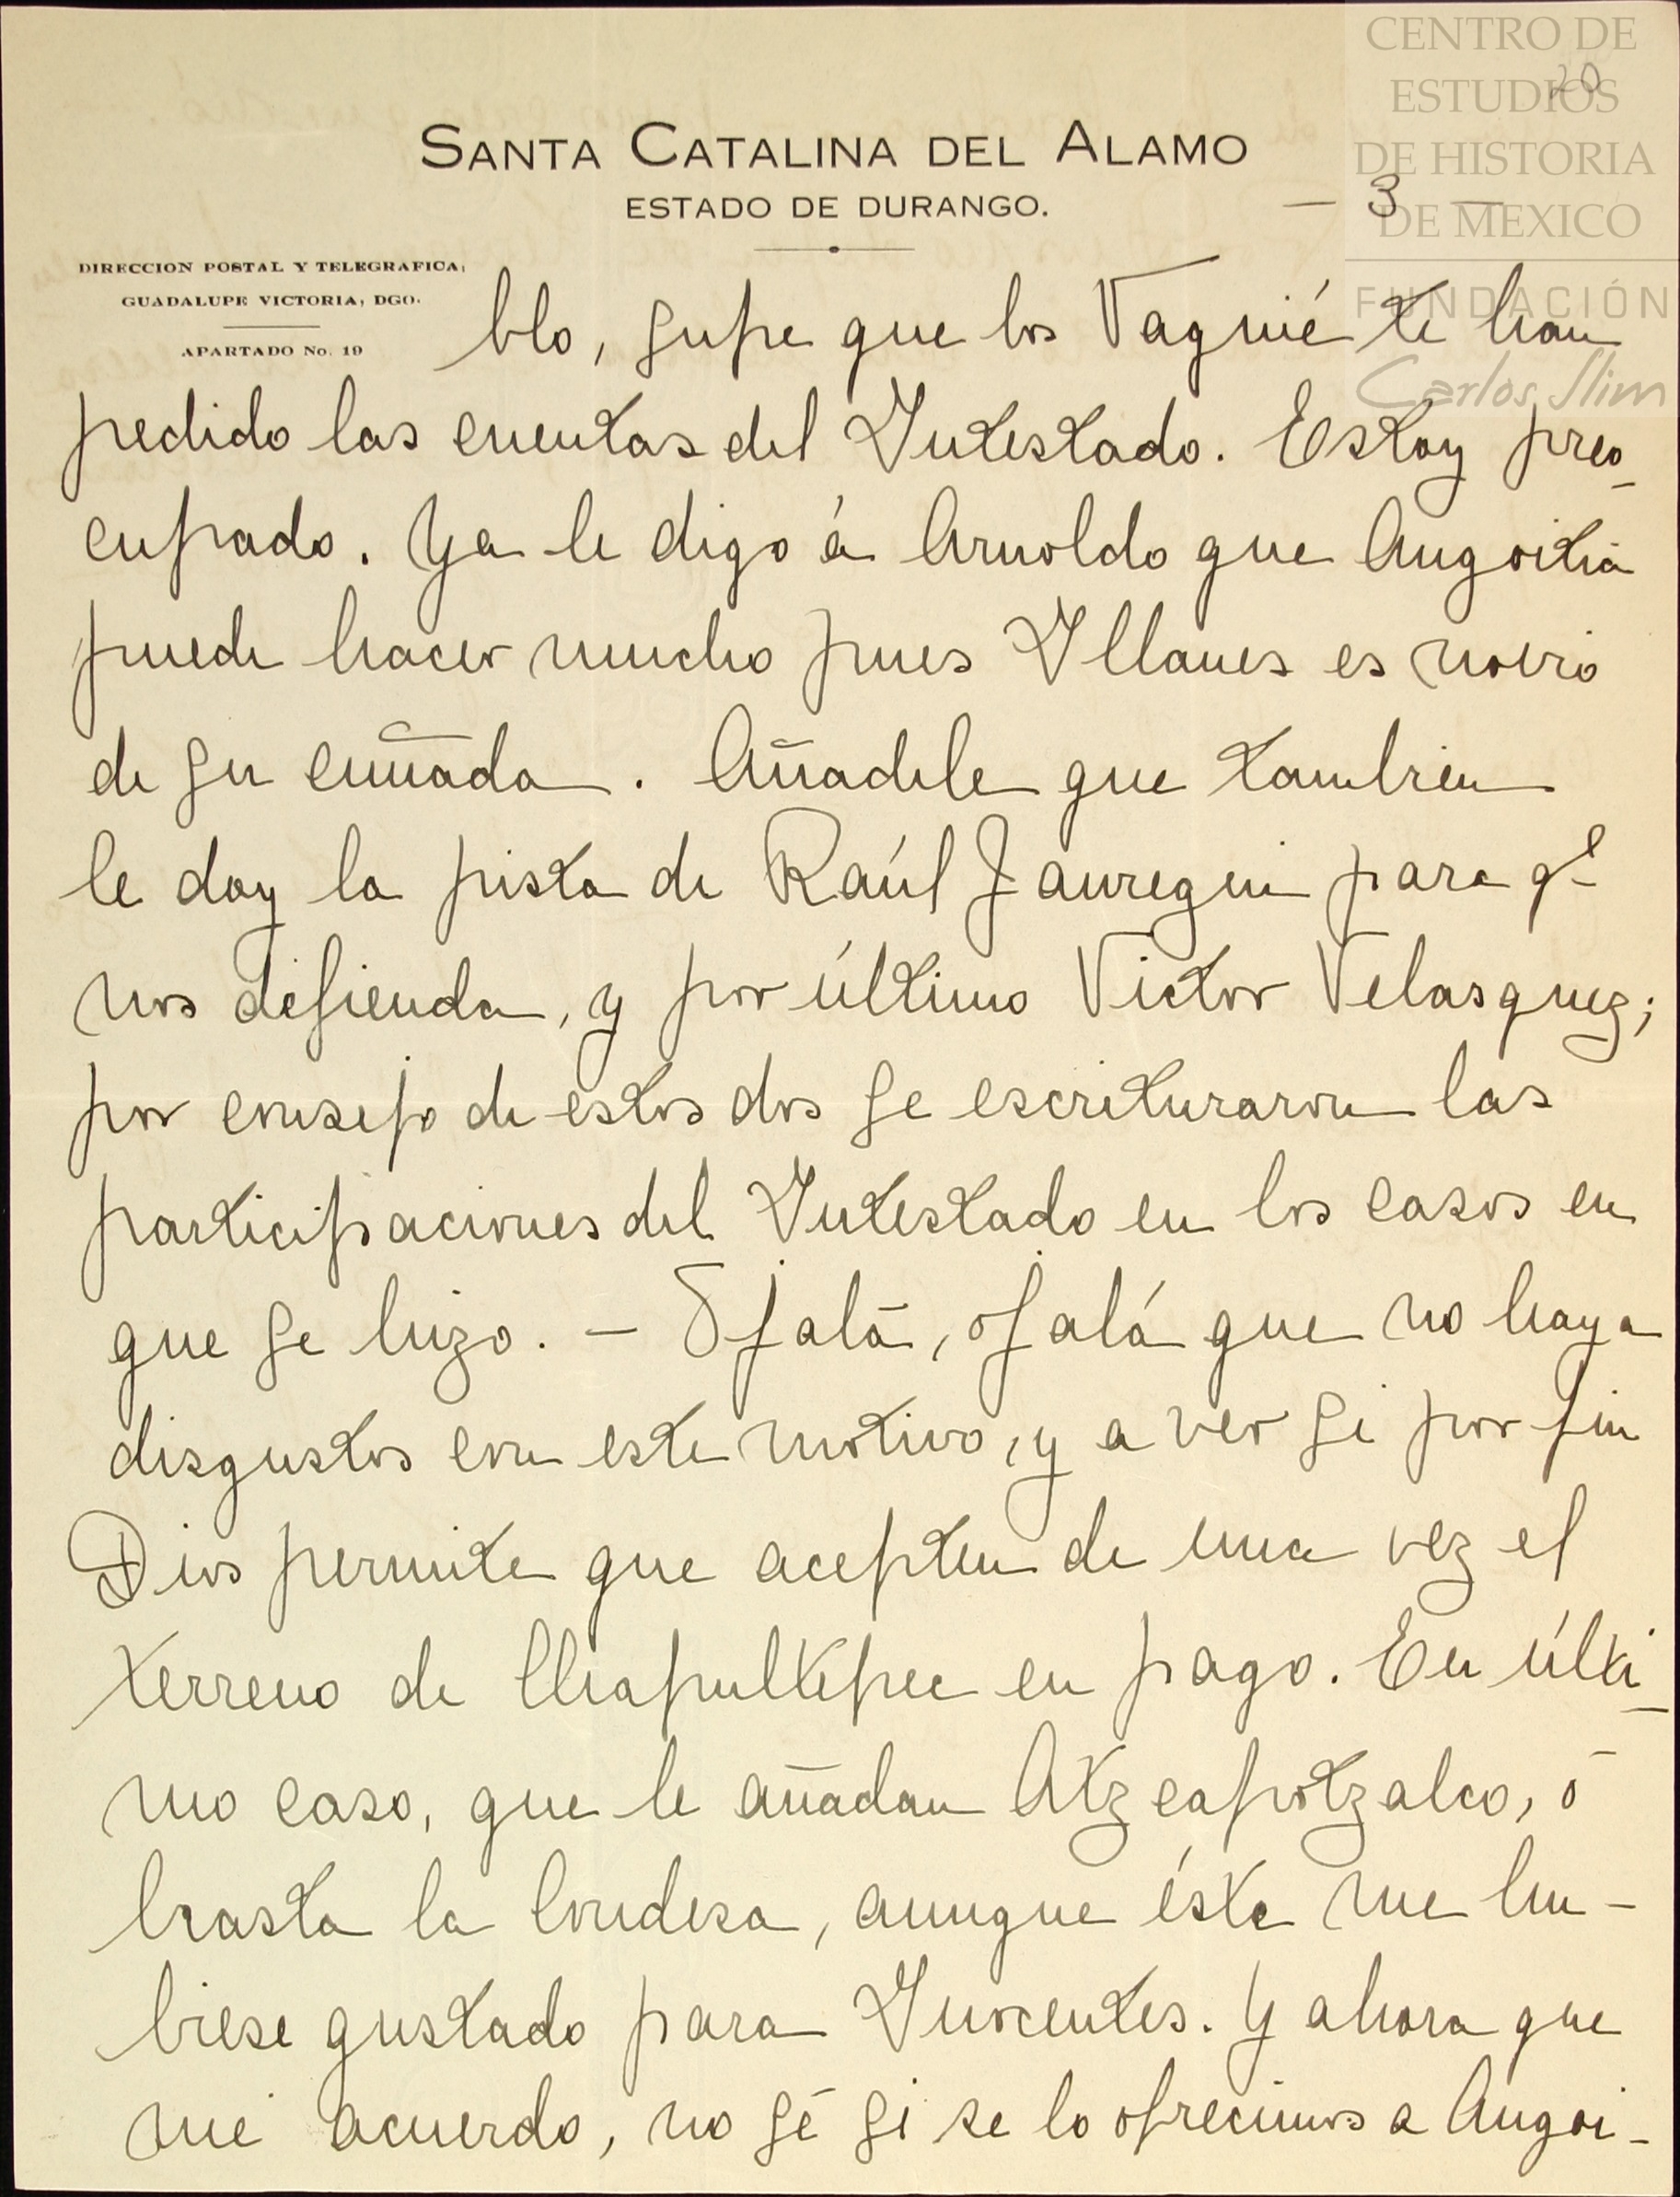 CENTRO DE
ESTUDIOS
DE HISTORIA
DE MEXICO
FUNDACIÓN
Carlos Slim
20
SANTA CATALINA DEL ALAMO
ESTADO DE DURANGO.
— 3 —
DIRECCION POSTAL Y TELEGRAFICA,
GUADALUPE VICTORIA, DGO.
APARTADO No. 19
blo, supe que los Vagnié te han
pedido las cuentas del Intestado. Estoy preo_
cupado. Ya le digo á Arnoldo que Angoitia
puede hacer mucho pues Illanes es novio
de su cuñada. Añadile que tambien
le doy la pista de Raúl Jauregui para qe
nos defienda, y por último Victor Velasquez;
por consejo de estos dos se escrituraron las
participaciones del Intestado en los casos en
que se hizo. — Ojalá, ojalá que no haya
disgustos con este motivo, y a ver si por fin
Dios permite que acepten de una vez el
terreno de Chapultepec en pago. En últi_
mo caso, que le añadan Atzcapotzalco, ó
hasta la Condesa, aunque ésta me hu-
biese gustado para Inocentes. Y ahora que
me acuerdo, no sé si se lo ofrecimos a Angoi-